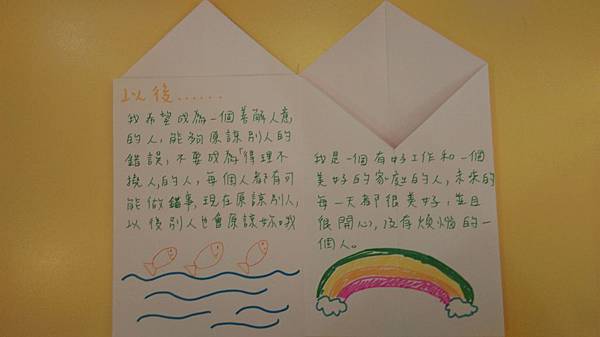 以後......
我希望成為一個善解人意
的人，能夠原諒別人的
錯誤，不要成為「得理不
饒人」的人，每個人都有可
能做錯事，現在原諒別人，
以後別人也會原諒妳。我
我是一個有好工作和一個
美好的家庭的人，未來的
每一天都很美好，並且
很開心，沒有煩惱的一
個人。